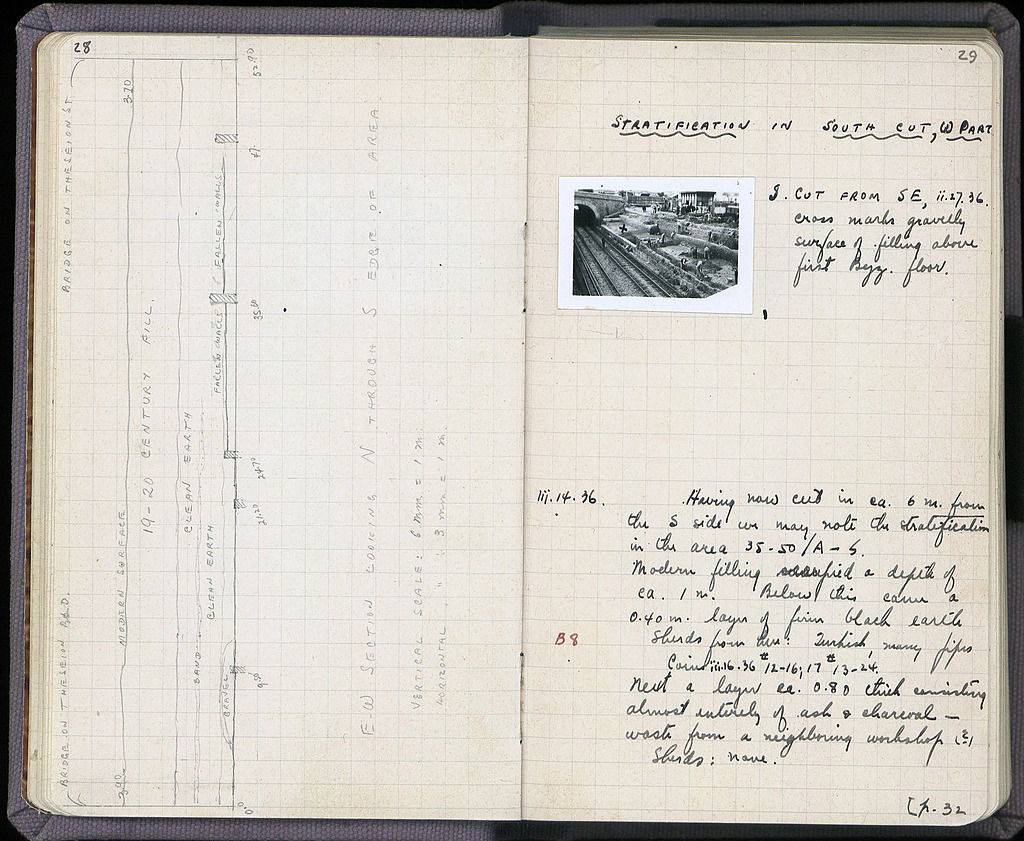 28
BRIDGE ON THESEION ST.
BRIDGE ON THESEION RD.
MODERN SURFACE
3.70
3.90
19-20 CENTURY FILL.
CLEAN EARTH
SAND
CLEAN EARTH
GRAVEL
FALLEN WALLS
FALLEN WALLS
0.0
9.50
21.20
24.70
35.60
47
52.90
E-W SECTION LOOKING N THROUGH S EDGE OF AREA
VERTICAL SCALE: 6 mm. = 1 m.
HORIZONTAL " : 3 mm = 1 m.
29
STRATIFICATION IN SOUTH CUT, W PART
I. CUT FROM SE, ii.27.36.
cross marks gravelly
surface of filling above
first Byz. floor.
iii.14.36. Having now cut in ca. 6 m. from
the S side we may note the stratification
in the area 35-50/A-S.
Modern filling occupied a depth of
ca. 1 m. Below this came a
0.40 m. layer of firm black earth
B8 Sherds from here: Turkish, many pipes
Coins iii.16.36 #12-16; 17 #13-24
Next a layer ca. 0.80 thick consisting
almost entirely of ash & charcoal —
waste from a neighboring workshop (?)
Sherds: none.
[p. 32